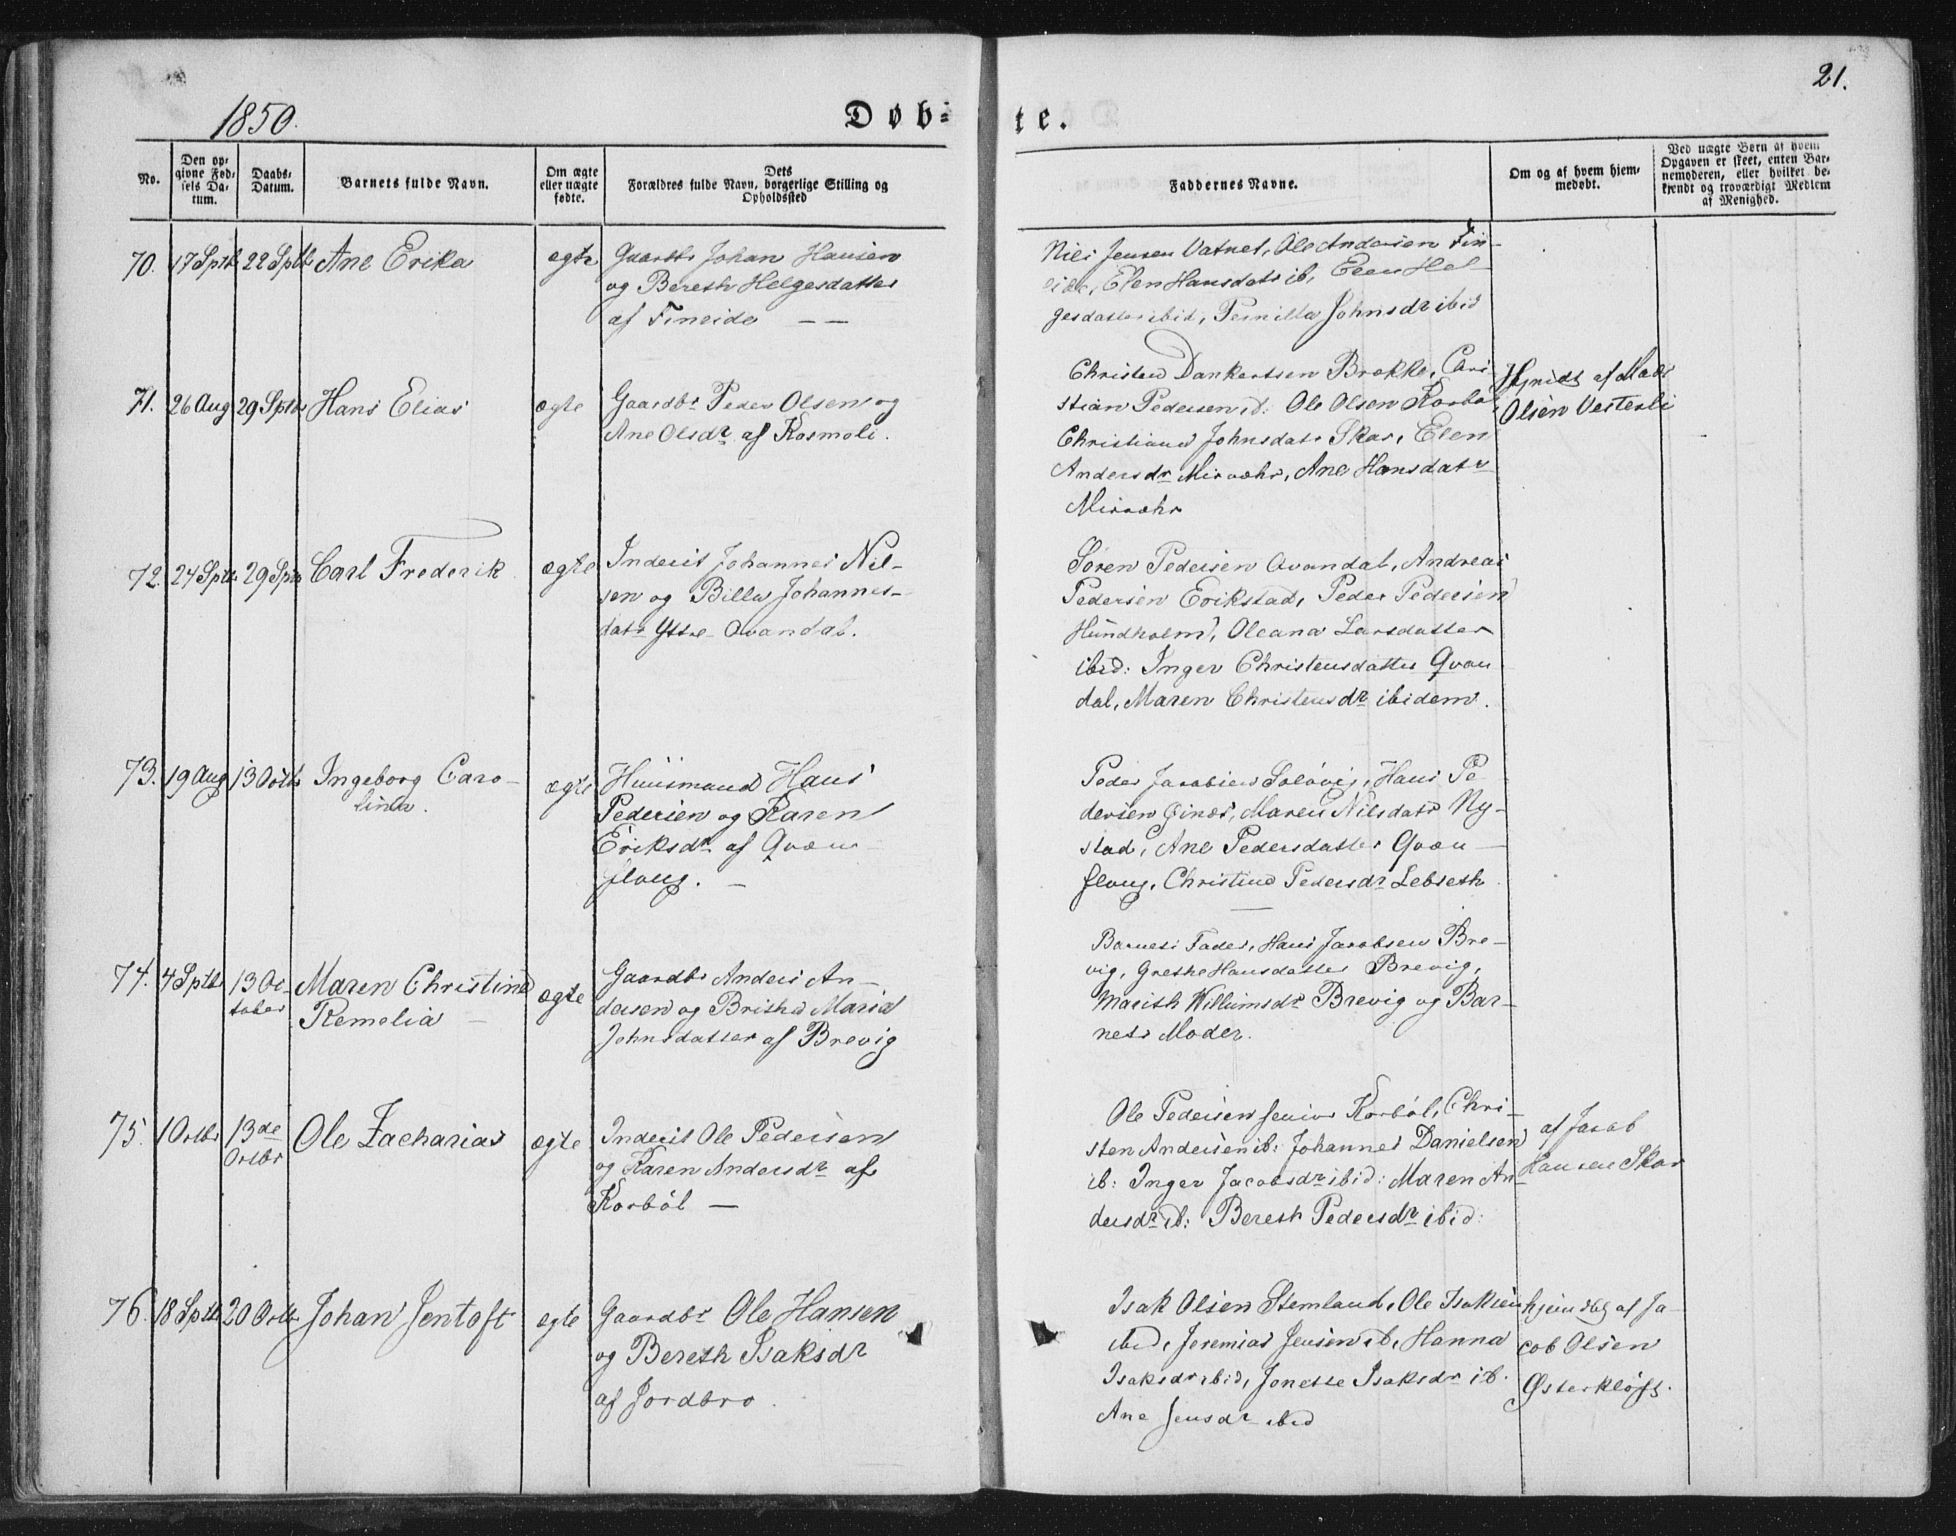 1850.
Døb-
te.
21.
No.
Den op-
givne Fød-
sels Da-
tum.
Daabs-
Datum.
Barnets fulde Navn.
Om ægte
eller uægte
fødte.
Dets
Forældres fulde Navn, borgerlige Stilling og
Opholdssted
Faddernes Navne.
Om og af hvem hjem-
medøbt.
Ved uægte Børn af hvem
Opgaven er skeet, enten Bar-
nemoderen, eller hvilket be-
kjendt og troværdigt Medlem
af Menighed.
70. 17 Sptbr 22 Sptbr Ane Erika ægte
Gaardbr Johan Hansen
og Bereth Helgesdatter
af Fineide
Nils Jensen Vatnet, Ole Andersen Fin-
eide, Elen Hansdatr ib, Elen Hel-
gesdatter ibid, Pernilla Johnsdr ibid
71. 26 Aug 29 Sptbr Hans Elias ægte
Gaardbr Peder Olsen og
Ane Olsdr af Kosmoli.
Christen Dankertsen Brække, Chri-
stian Pedersen id: Ole Olsen Korbøl
Christiana Johnsdatr Skar, Elen
Andersdr Misvæhr, Ane Hansdatr
Misvæhr
Hjmdt af Mads
Olsen Vesterli
72. 24 Sptbr 29 Sptbr Carl Frederik ægte
Inderst Johannes Nil-
sen og Billa Johannes-
datr Ytre Qvandal.
Søren Pedersen Qvandal, Andreas
Pedersen Erikstad, Peder Pedersen
Hundholm, Oleana Larsdatter
ibid: Inger Christensdatter Qvan
dal, Maren Christensdr ibidem.
73. 19 Aug 13 Octbr Ingeborg Caro-
lina.
ægte
Huusmand Hans
Pedersen og Karen
Eriksdr af Qvæn
floug.
Peder Jacobsen Soløvig, Hans Pe
dersen Ginæs, Maren Nilsdatr Ny-
stad, Ane Pedersdatter Qvæn
floug, Christina Pedersdr Lebseth
74. 4 Sptbr 13 Oc-
tober
Maren Christina
Remelia
ægte
Gaardbr Anders An-
dersen og Britha Maria
Johnsdatter af Brevig
Barnets Fader, Hans Jacobsen Bre-
vig, Grethe Hansdatter Brevig,
Marith Willumsdr Brevig og Bar-
nets Moder.
75. 1 Octbr 13de
Octbr
Ole Zacharias ægte
Inderst Ole Pedersen
og Karen Andersdr af
Korbøl
Ole Pedersen senior Korbøl, Chri-
sten Andersen ib: Johannes Danielsen
ib: Inger Jacobsdr ibid: Maren An-
dersdr ib: Bereth Pedersdr ibid:
af Jacob
Hansen Skar
76. 18 Sptbr 20 Octbr Johan Jentoft ægte
Gaardbr Ole Hansen
og Bereth Isaksdr
af Jordbro.
Isak Olsen Stemland, Ole Isaksen
ibid, Jeremias Jensen ib, Hanna
Isaksdr ibid, Jonette Isaksdr ib.
Ane Jensdr ibid
hjemdøbt af Ja-
cob Olsen
Østerkløft.